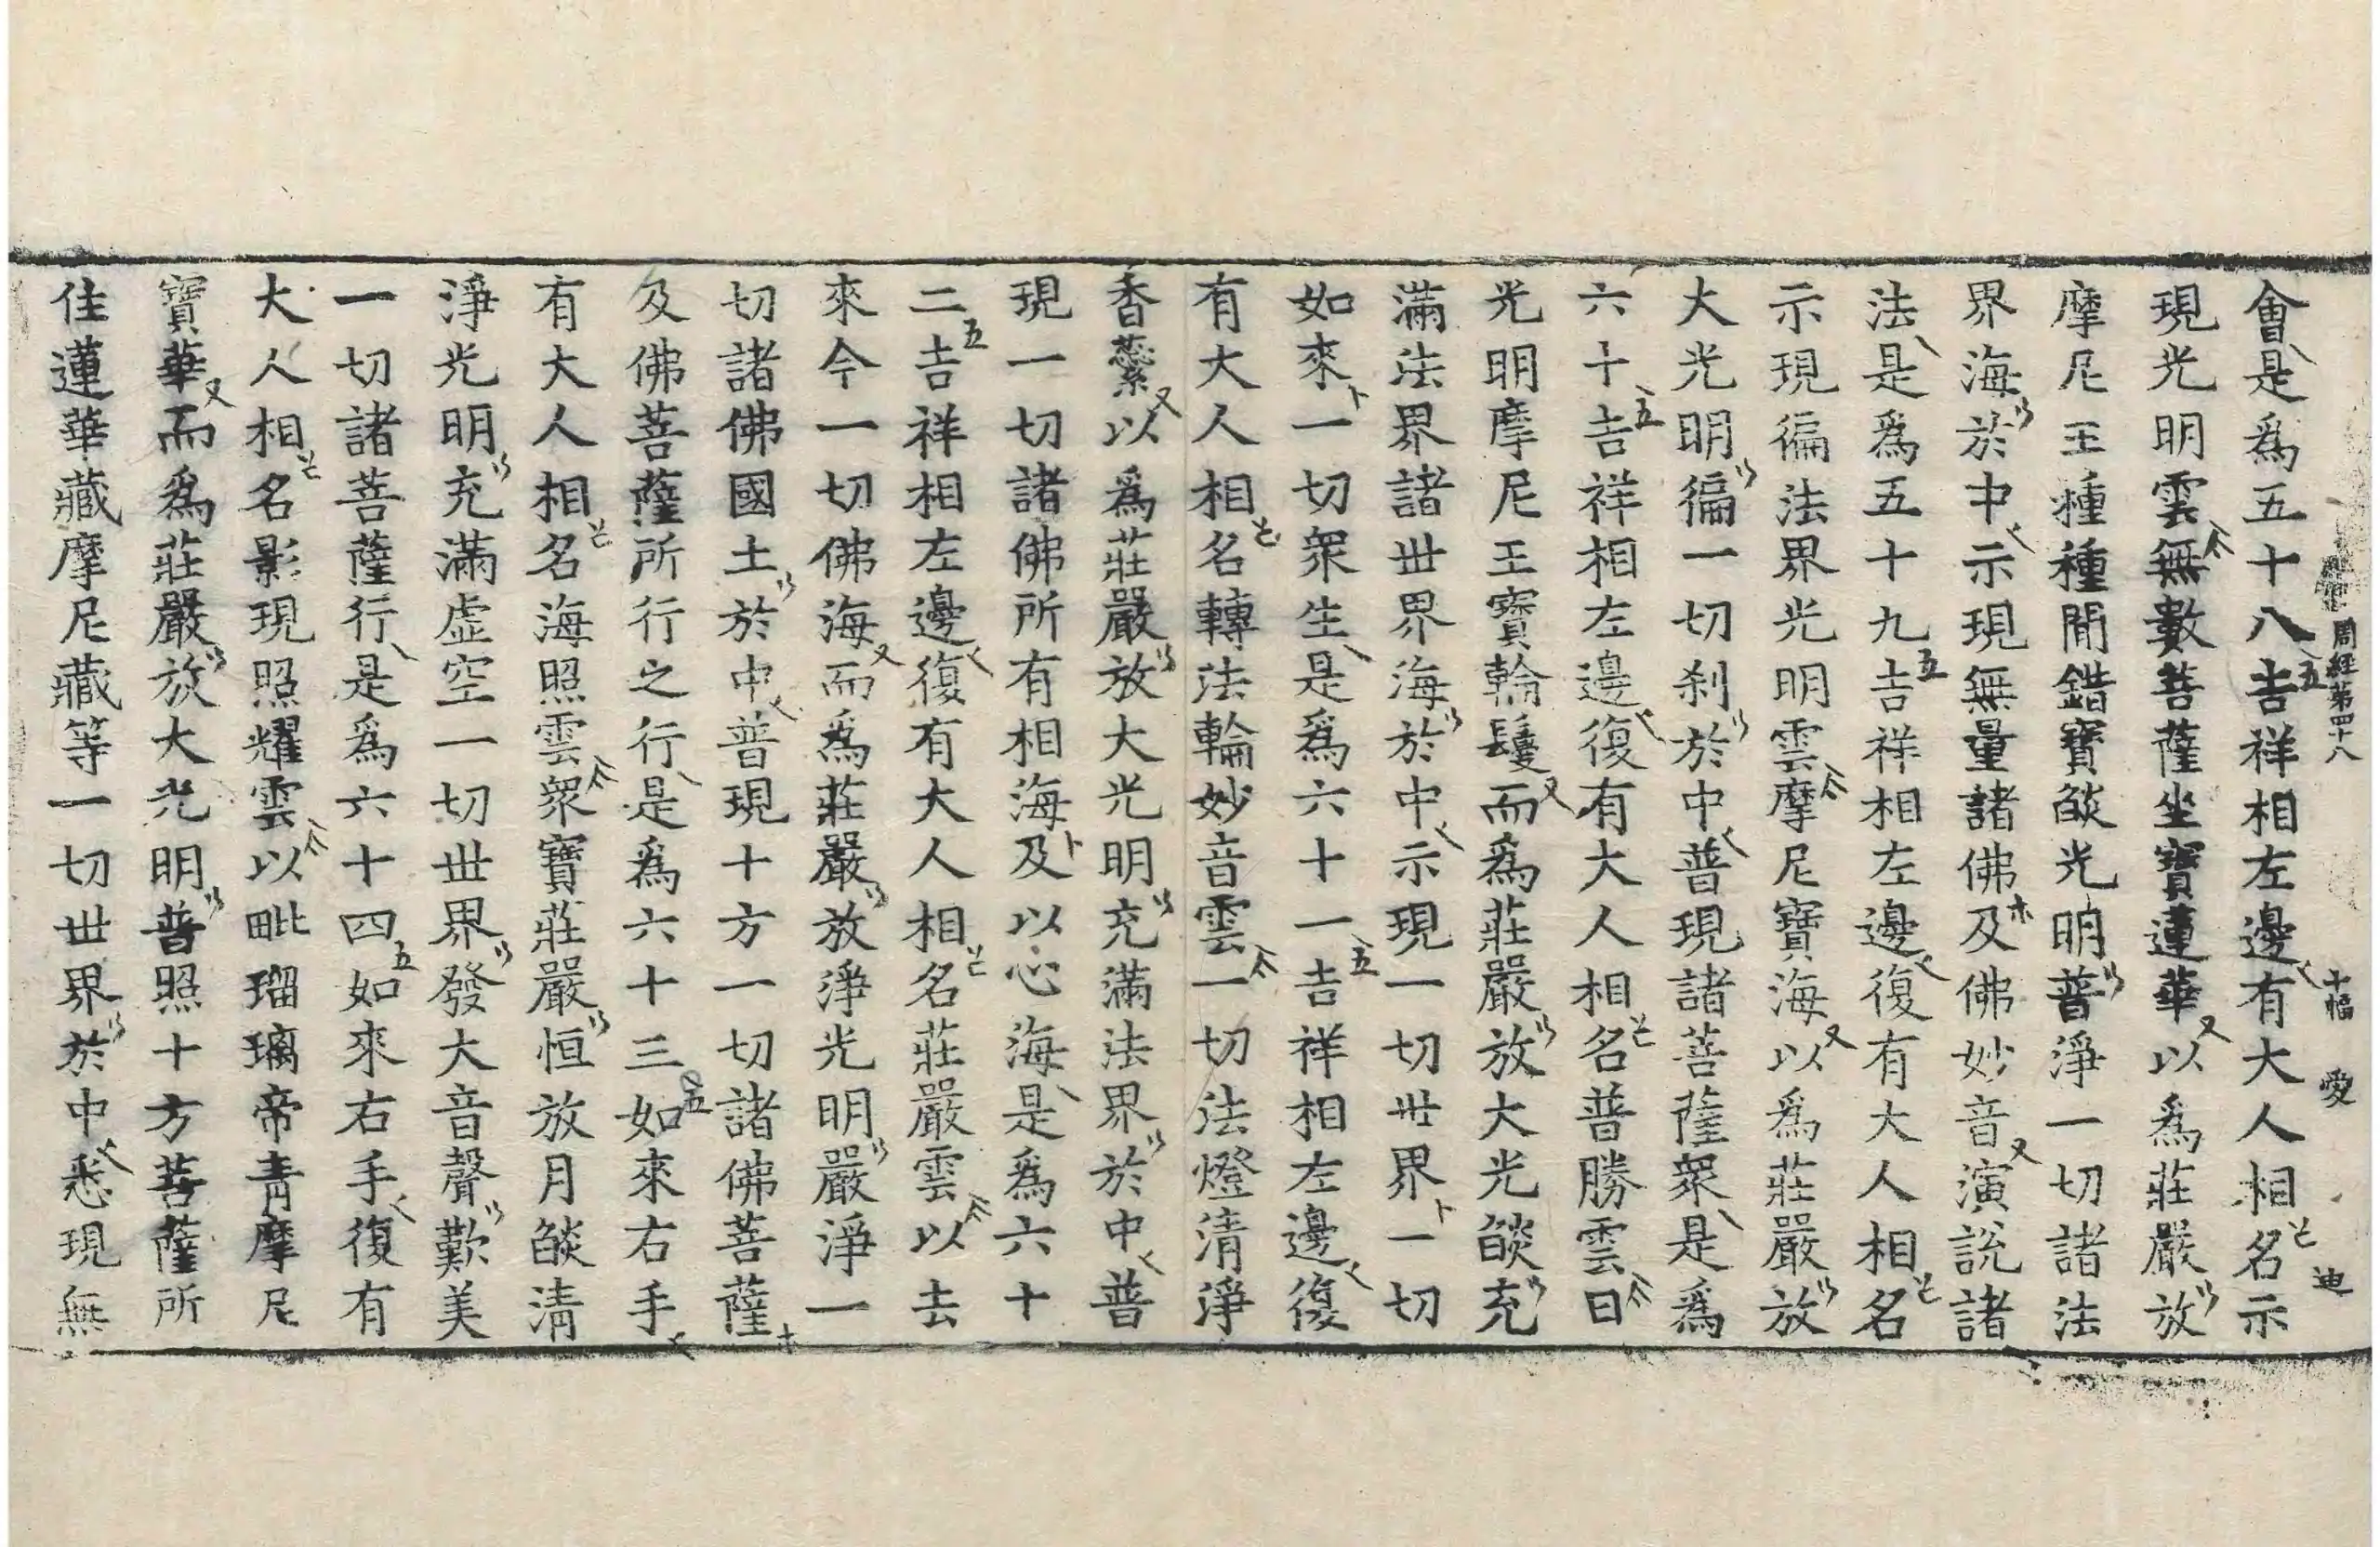 會是爲五十八吉祥相左邊有大人相名示
周經第四十八 十幅 愛 迪
現光明雲無數菩薩坐寶蓮華以爲莊嚴放
摩尼王種種閒錯寶燄光明普淨一切諸法
界海於中示現無量諸佛及佛妙音演說諸
法是爲五十九吉祥相左邊復有大人相名
示現徧法界光明雲摩尼寶海以爲莊嚴放
大光明徧一切刹於中普現諸菩薩衆是爲
六十吉祥相左邊復有大人相名普勝雲日
光明摩尼王寶輪鬘而爲莊嚴放大光燄充
滿法界諸世界海於中示現一切世界一切
如來一切衆生是爲六十一吉祥相左邊復
有大人相名轉法輪妙音雲一切法燈清淨
香蘂以爲莊嚴放大光明充滿法界於中普
現一切諸佛所有相海及以心海是爲六十
二吉祥相左邊復有大人相名莊嚴雲以去
來今一切佛海而爲莊嚴放淨光明嚴淨一
切諸佛國土於中普現十方一切諸佛菩薩
及佛菩薩所行之行是爲六十三如來右手
有大人相名海照雲衆寶莊嚴恒放月燄清
淨光明充滿虛空一切世界發大音聲歎美
一切諸菩薩行是爲六十四如來右手復有
大人相名影現照耀雲以毗瑠璃帝青摩尼
寶華而爲莊嚴放大光明普照十方菩薩所
住蓮華藏摩尼藏等一切世界於中悉現無